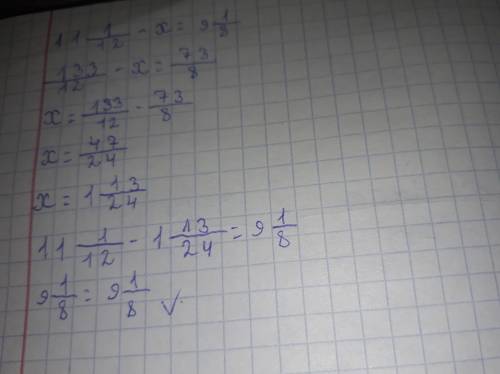 11 1/12 - x = 9 1/8
133/12 - x = 73/8
x = 133/12 - 73/8
x = 47/24
x = 1 13/24
11 1/12 - 1 13/24 = 9 1/8
9 1/8 = 9 1/8 ✓